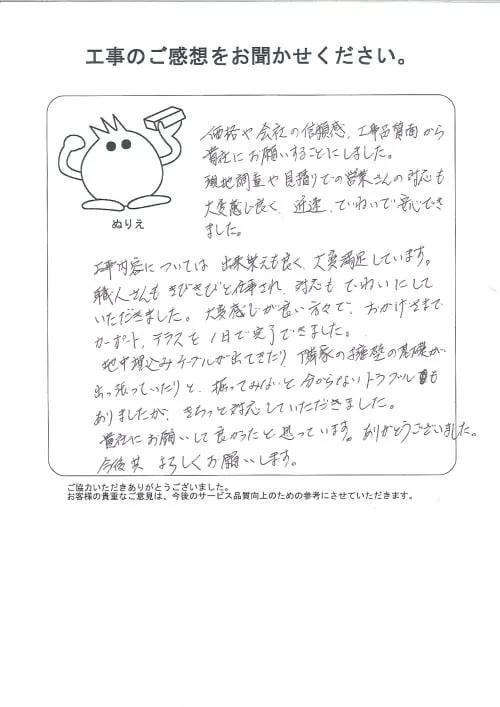 工事のご感想をお聞かせください。
価格や会社の信頼感、工事品質面から
貴社にお願いすることにしました。
現地調査や見積りでの営業さんの対応も
大変感じ良く、迅速、ていねいで安心でき
ました。
ぬりえ
工事内容については 出来栄えも良く、大変満足しています。
職人さんも きびきびと仕事され、対応も ていねいにして
いただきました。大変感じが良い方々で、おかげさまで
カーポート、テラスと 1日で完了できました。
地中埋込みケーブルが出てきたり 隣家の擁壁の基礎が
出っ張っていたりと、掘ってみないと分からないトラブルも
ありましたが、きちっと対応していただきました。
貴社にお願いして良かったと思っています。ありがとうございました。
今後共 よろしくお願いします。
ご協力いただきありがとうございました。
お客様の貴重なご意見は、今後のサービス品質向上のための参考にさせていただきます。